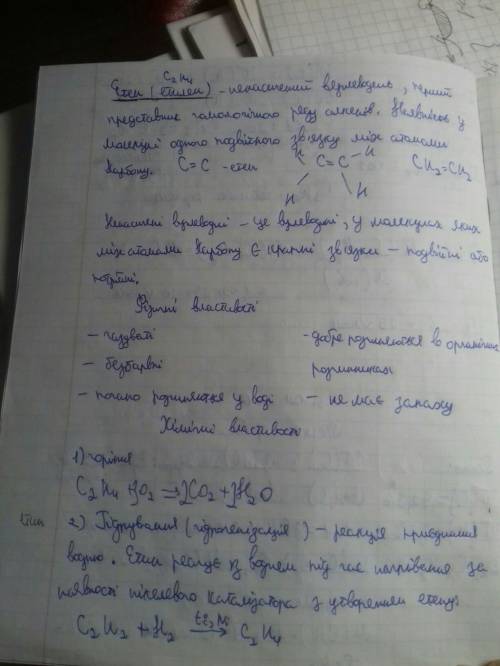 C₂H₄
Етен (етилен) - ненасичений вуглеводень, перший
представник гомологічного ряду алкенів. Наявність у
молекулі одного подвійного зв'язку між атомами
Карбону. C=C -етен H H C=C H H CH₂=CH₂
Ненасичені вуглеводні - це вуглеводні, у молекулах яких
між атомами Карбону є кратні зв'язки - подвійні або
потрійні.
Фізичні властивості
- газуваті - добре розчиняються в органічних
- безбарвні розчинниках
- погано розчиняються у воді - не має запаху
Хімічні властивості
1) горіння
C₂H₄ + 3O₂ → 2CO₂ + 2H₂O
Етин 2) Гідрування (гідрогенізація) - реакція приєднання
водню. Етин реагує із воднем під час нагрівання за
наявності нікелевого каталізатора з утворенням етену:
C₂H₂ + H₂ t°, Ni → C₂H₄